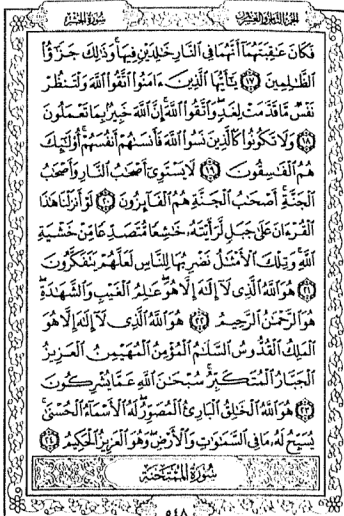 الجزء الثامن والعشرون سورة الحشر
فَكَانَ عَٰقِبَتَهُمَآ أَنَّهُمَا فِى ٱلنَّارِ خَٰلِدَيْنِ فِيهَا ۚ وَذَٰلِكَ جَزَٰٓؤُا۟
ٱلظَّٰلِمِينَ ١٧ يَٰٓأَيُّهَا ٱلَّذِينَ ءَامَنُوا۟ ٱتَّقُوا۟ ٱللَّهَ وَلْتَنظُرْ
نَفْسٌ مَّا قَدَّمَتْ لِغَدٍ ۖ وَٱتَّقُوا۟ ٱللَّهَ ۚ إِنَّ ٱللَّهَ خَبِيرٌۢ بِمَا تَعْمَلُونَ
١٨ وَلَا تَكُونُوا۟ كَٱلَّذِينَ نَسُوا۟ ٱللَّهَ فَأَنسَىٰهُمْ أَنفُسَهُمْ ۚ أُو۟لَٰٓئِكَ
هُمُ ٱلْفَٰسِقُونَ ١٩ لَا يَسْتَوِىٓ أَصْحَٰبُ ٱلنَّارِ وَأَصْحَٰبُ
ٱلْجَنَّةِ ۚ أَصْحَٰبُ ٱلْجَنَّةِ هُمُ ٱلْفَآئِزُونَ ٢٠ لَوْ أَنزَلْنَا هَٰذَا
ٱلْقُرْءَانَ عَلَىٰ جَبَلٍ لَّرَأَيْتَهُۥ خَٰشِعًا مُّتَصَدِّعًا مِّنْ خَشْيَةِ
ٱللَّهِ ۚ وَتِلْكَ ٱلْأَمْثَٰلُ نَضْرِبُهَا لِلنَّاسِ لَعَلَّهُمْ يَتَفَكَّرُونَ
٢١ هُوَ ٱللَّهُ ٱلَّذِى لَآ إِلَٰهَ إِلَّا هُوَ ۖ عَٰلِمُ ٱلْغَيْبِ وَٱلشَّهَٰدَةِ ۖ
هُوَ ٱلرَّحْمَٰنُ ٱلرَّحِيمُ ٢٢ هُوَ ٱللَّهُ ٱلَّذِى لَآ إِلَٰهَ إِلَّا هُوَ
ٱلْمَلِكُ ٱلْقُدُّوسُ ٱلسَّلَٰمُ ٱلْمُؤْمِنُ ٱلْمُهَيْمِنُ ٱلْعَزِيزُ
ٱلْجَبَّارُ ٱلْمُتَكَبِّرُ ۚ سُبْحَٰنَ ٱللَّهِ عَمَّا يُشْرِكُونَ
٢٣ هُوَ ٱللَّهُ ٱلْخَٰلِقُ ٱلْبَارِئُ ٱلْمُصَوِّرُ ۖ لَهُ ٱلْأَسْمَآءُ ٱلْحُسْنَىٰ ۚ
يُسَبِّحُ لَهُۥ مَا فِى ٱلسَّمَٰوَٰتِ وَٱلْأَرْضِ ۖ وَهُوَ ٱلْعَزِيزُ ٱلْحَكِيمُ ٢٤
سُورَةُ الْمُمْتَحَنَةِ
٥٤٨